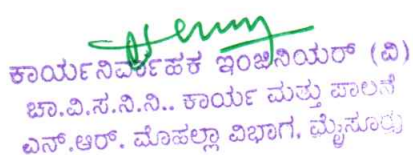 ಕಾರ್ಯನಿರ್ವಾಹಕ ಇಂಜಿನಿಯರ್ (ವಿ)
ಚಾ.ವಿ.ಸ.ನಿ.ನಿ.. ಕಾರ್ಯ ಮತ್ತು ಪಾಲನೆ
ಎನ್.ಆರ್. ಮೊಹಲ್ಲಾ ವಿಭಾಗ, ಮೈಸೂರು